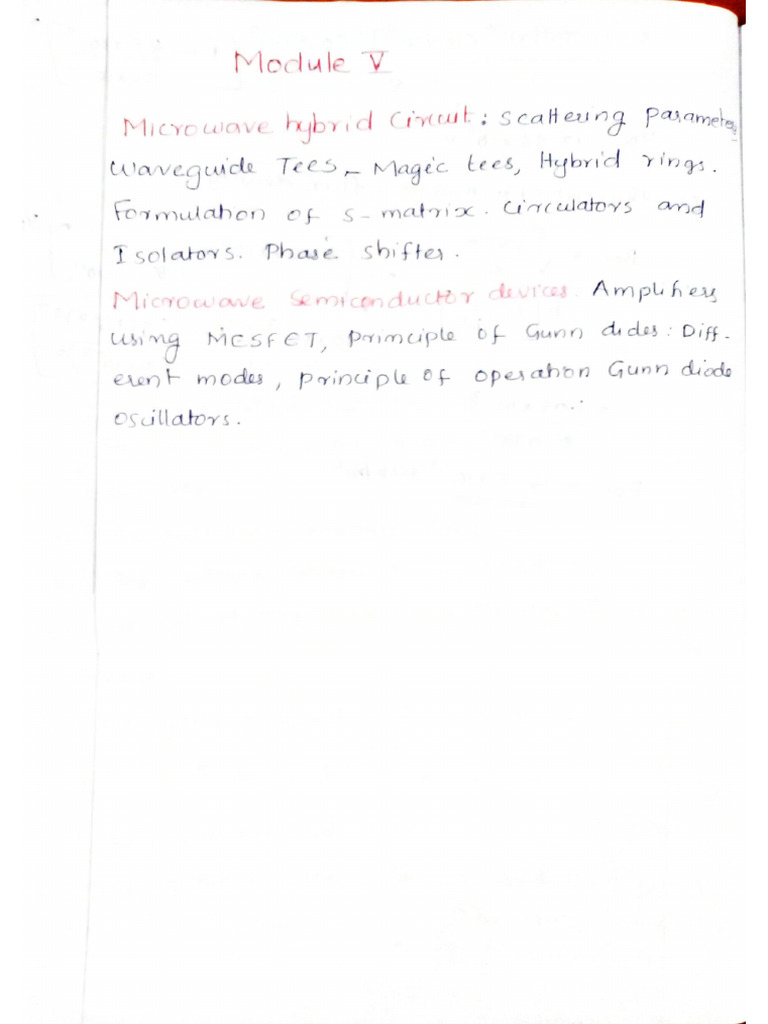 Module V
Microwave hybrid Circuit : Scattering Parameters,
Waveguide Tees, - Magic tees, Hybrid rings.
Formulation of S-matrix. Circulators and
Isolators. Phase shifter.
Microwave Semiconductor devices. Amplifiers
using MESFET, Principle of Gunn diodes : Diff-
erent modes, Principle of operation Gunn diode
oscillators.